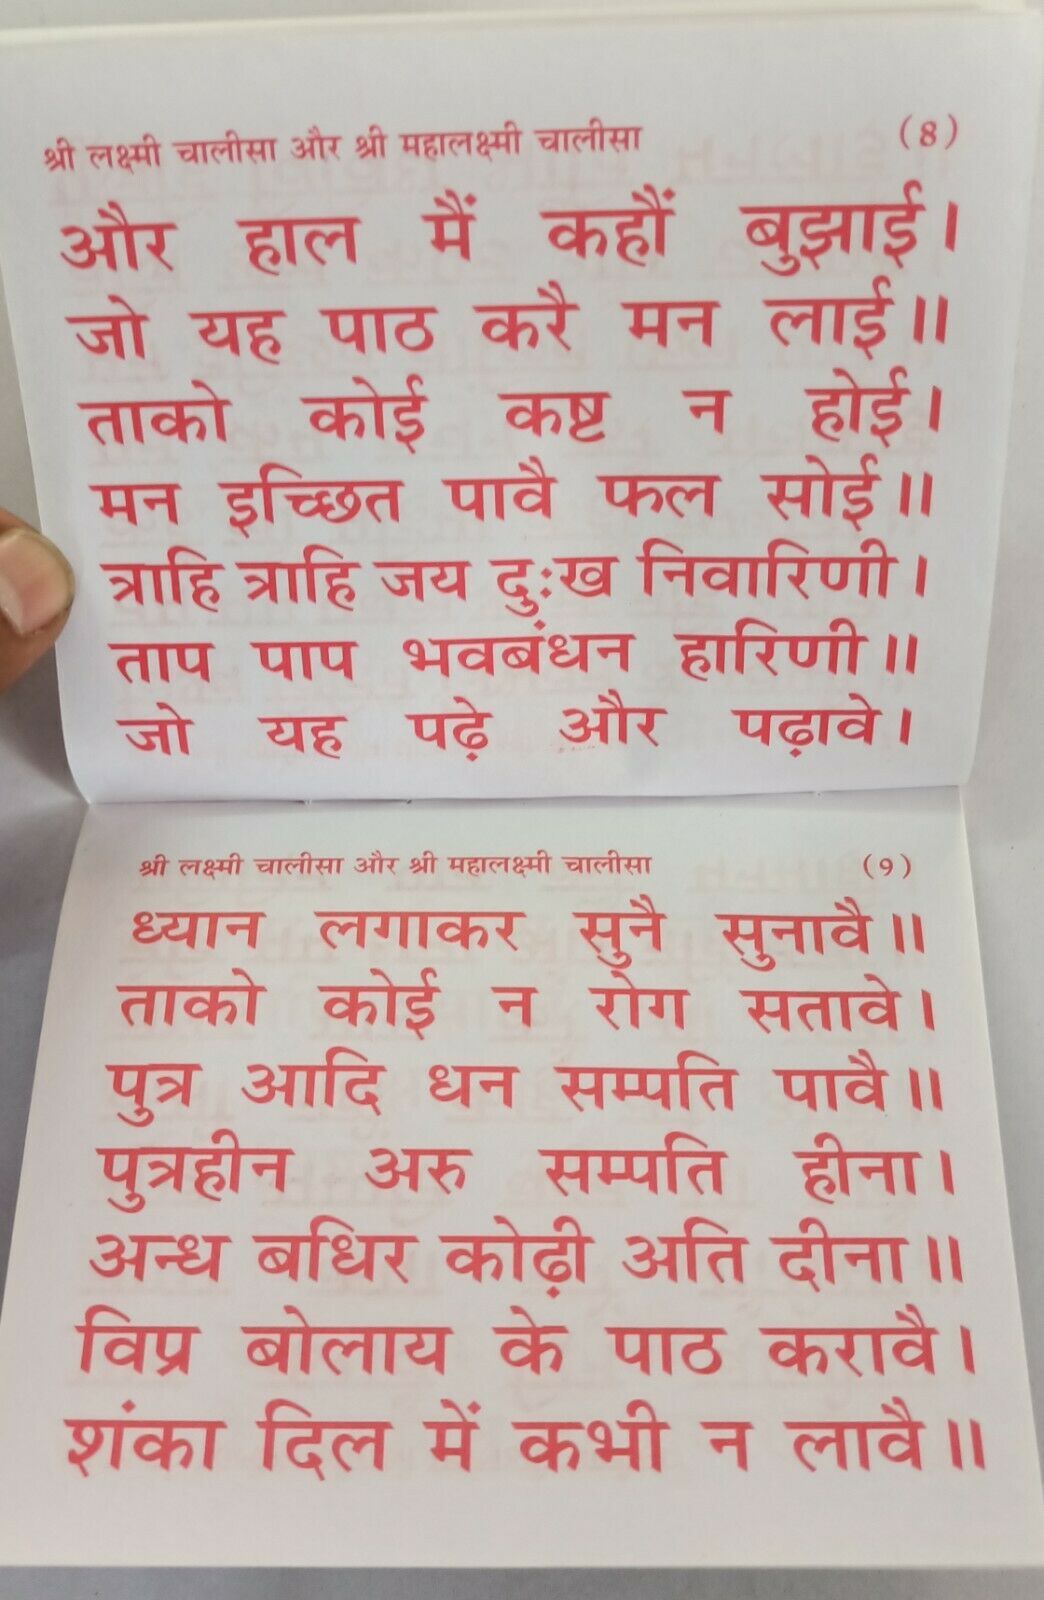 श्री लक्ष्मी चालीसा और श्री महालक्ष्मी चालीसा (8)
और हाल मैं कहौं बुझाई।
जो यह पाठ करै मन लाई॥
ताको कोई कष्ट न होई।
मन इच्छित पावै फल सोई॥
त्राहि त्राहि जय दुःख निवारिणी।
ताप पाप भवबंधन हारिणी॥
जो यह पढ़े और पढ़ावे।
श्री लक्ष्मी चालीसा और श्री महालक्ष्मी चालीसा (9)
ध्यान लगाकर सुनै सुनावै॥
ताको कोई न रोग सतावे।
पुत्र आदि धन सम्पति पावै॥
पुत्रहीन अरु सम्पति हीना।
अन्ध बधिर कोढ़ी अति दीना॥
विप्र बोलाय के पाठ करावै।
शंका दिल में कभी न लावै॥